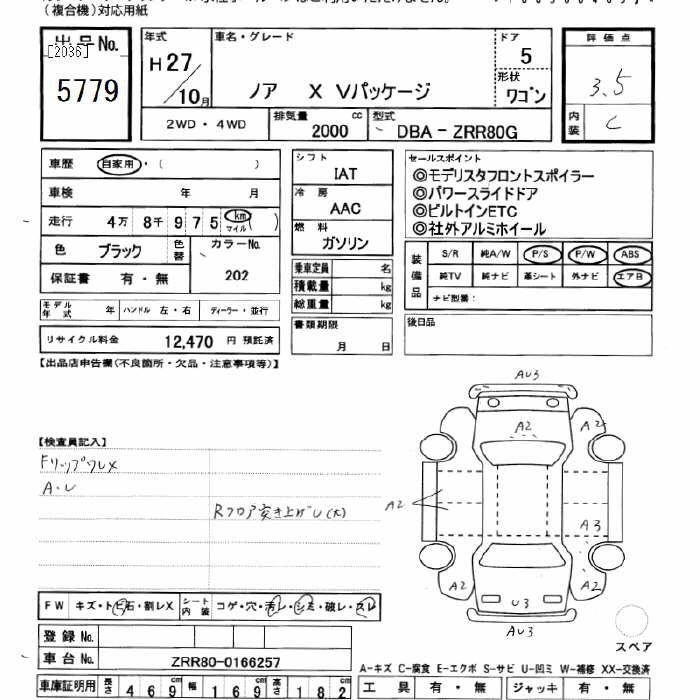 (複合機)対応用紙
出品No.
[2036]
5779
年式
H27/10月
車名・グレード
ノア X Vパッケージ
ドア
5
形状
ワゴン
2WD・4WD
排気量 cc
2000
型式
DBA - ZRR80G
評価点
3.5
内装
C
車歴 自家用・( )
車検 年 月
走行 4万 8千 9 7 5 km マイル ( )
色 ブラック 色替
カラーNo.
202
保証書 有・無
モデル年式 年 ハンドル 左・右 ディーラー・並行
リサイクル料金 12,470 円 預託済
シフト
IAT
冷房
AAC
燃料
ガソリン
乗車定員 名
積載量 kg
総重量 kg
書類期限
月 日
セールスポイント
◎モデリスタフロントスポイラー
◎パワースライドドア
◎ビルトインETC
◎社外アルミホイール
装備品
S/R 純A/W P/S P/W ABS
純TV 純ナビ 革シート 外ナビ エアB
ナビ型番:
後日品
【出品店申告欄(不良箇所・欠品・注意事項等)】
【検査員記入】
A・U
Rフロア突き上げU(大)
AU3
A2
A2
A2
A3
A2
A2
U3
AU3
スペア
FW キズ・トビ石・割レX シート内装 コゲ・穴・汚レ・シミ・破レ・スレ
登録No.
車台No. ZRR80-0166257
車庫証明用 長さ 469cm 幅 169cm 高さ 182cm
A-キズ C-腐食 E-エクボ S-サビ U-凹ミ W-補修 XX-交換済
工具 有・無 ジャッキ 有・無